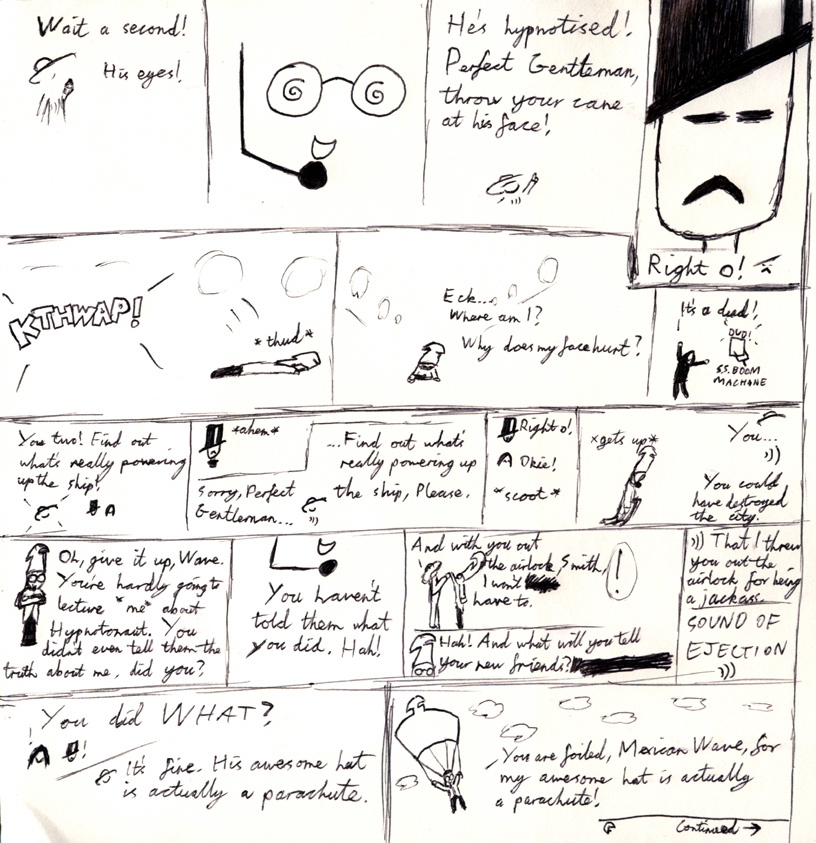 Wait a second!
His eyes!
He's hypnotised!
Perfect Gentleman,
throw your cane
at his face!
Right o!
KTHWAP!
*thud*
Eck...
Where am I?
Why does my face hurt?
It's a dud!
DUD!
S.S. BOOM
MACHINE
You two! Find out
what's really powering
up the ship!
*ahem*
Sorry, Perfect
Gentleman...
...Find out what's
really powering up
the ship, Please.
Right o!
Okie!
*scoot*
*gets up*
You...
You could
have destroyed
the city.
Oh, give it up, Wave.
You're hardly going to
lecture *me* about
Hypnotonaut. You
didn't even tell them the
truth about me, did you?
You haven't
told them what
you did. Hah!
And with you out
the airlock, Smith,
I won't
have to.
!
Hah! And what will you tell
your new friends?
That I threw
you out the
airlock for being
a jackass.
SOUND OF
EJECTION
You did WHAT?
!
It's fine. His awesome hat
is actually a parachute.
You are foiled, Mexican Wave, for
my awesome hat is actually
a parachute!
Continued →